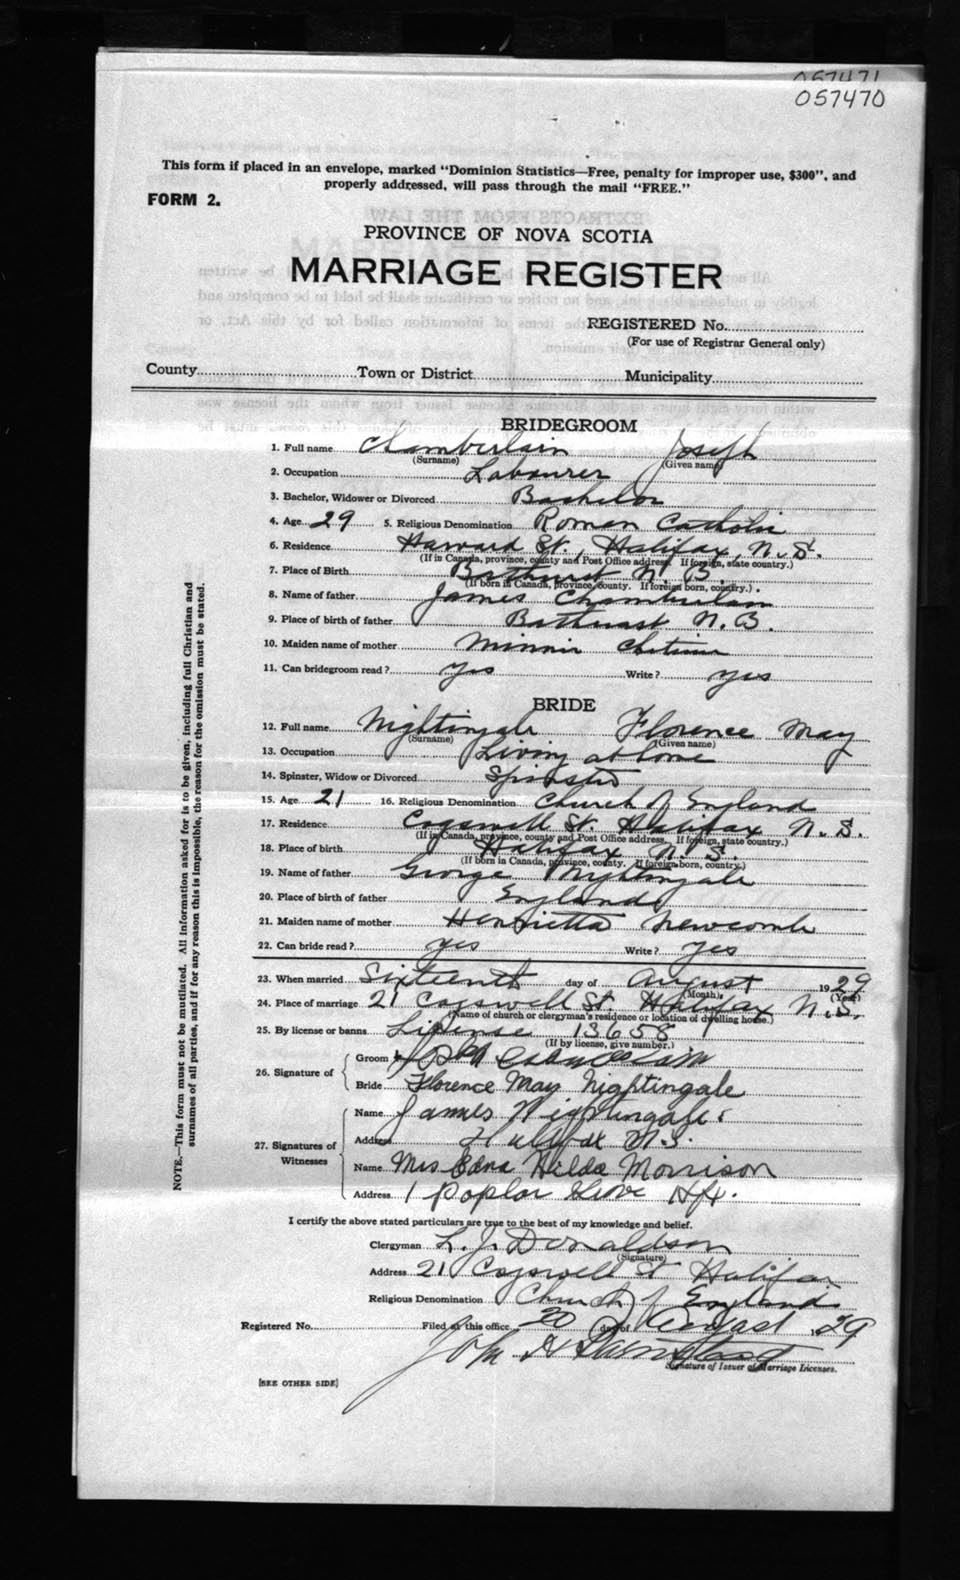 057471
057470
This form if placed in an envelope, marked "Dominion Statistics—Free, penalty for improper use, $300", and
properly addressed, will pass through the mail "FREE."
FORM 2.
PROVINCE OF NOVA SCOTIA
MARRIAGE REGISTER
REGISTERED No.
(For use of Registrar General only)
County Town or District Municipality
BRIDEGROOM
1. Full name Chamberlain Joseph
(Surname) (Given name)
2. Occupation Labourer
3. Bachelor, Widower or Divorced Bachelor
4. Age 29 5. Religious Denomination Roman Catholic
6. Residence Harvard St., Halifax, N.S.
(If in Canada, province, county and Post Office address. If foreign, state country.)
7. Place of Birth Bathurst N.B.
(If born in Canada, province, county. If foreign born, country.)
8. Name of father James Chamberlain
9. Place of birth of father Bathurst N.B.
10. Maiden name of mother Minnie
11. Can bridegroom read? yes Write? yes
BRIDE
12. Full name Nightingale Florence May
(Surname) (Given name)
13. Occupation Living at home
14. Spinster, Widow or Divorced Spinster
15. Age 21 16. Religious Denomination Church of England
17. Residence Cogswell St. Halifax N.S.
(If in Canada, province, county and Post Office address. If foreign, state country.)
18. Place of birth Halifax N.S.
(If born in Canada, province, county. If foreign born, country.)
19. Name of father George Nightingale
20. Place of birth of father England
21. Maiden name of mother Henrietta Newcombe
22. Can bride read? yes Write? yes
23. When married Sixteenth day of August 1929
(Month) (Year)
24. Place of marriage 21 Cogswell St. Halifax N.S.
(Name of church or clergyman's residence or location of dwelling house.)
25. By license or banns License 13658
(If by license, give number.)
26. Signature of Groom Joseph Chamberlain
Bride Florence May Nightingale
27. Signatures of Witnesses Name James Nightingale
Address Halifax N.S.
Name Mrs Edna Hilda Morrison
Address 1 Poplar Grove Hfx.
I certify the above stated particulars are true to the best of my knowledge and belief.
Clergyman L. J. Donaldson
(Signature)
Address 21 Cogswell St Halifax
Religious Denomination Church of England
Registered No. Filed at this office 20 day of August 1929
John H
Signature of Issuer of Marriage Licenses.
[SEE OTHER SIDE]
NOTE.—This form must not be mutilated. All information asked for is to be given, including full Christian and
surnames of all parties, and if for any reason this is impossible, the reason for the omission must be stated.